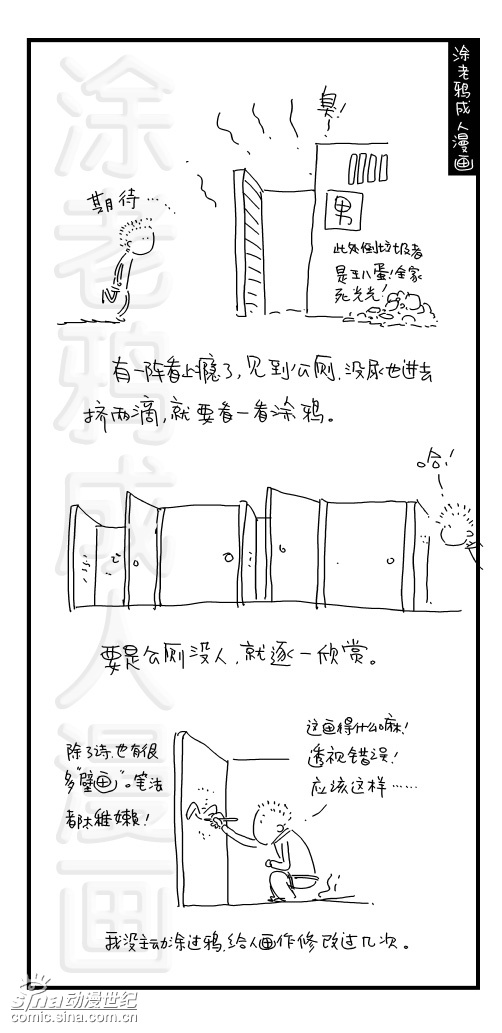 涂老鸦成人漫画
臭!
期待……
男
此处倒垃圾者
是王八蛋!全家
死光光!
有一阵看上瘾了,见到公厕,没尿也进去
挤两滴,就要看一看涂鸦。
哈!
要是公厕没人,就逐一欣赏。
除了诗,也有很
多“壁画”。笔法
都太稚嫩!
这画得什么嘛!
透视错误!
应该这样……
我没主动涂过鸦,给人画作修改过几次。
涂老鸦成人漫画
sina动漫世纪
comic.sina.com.cn